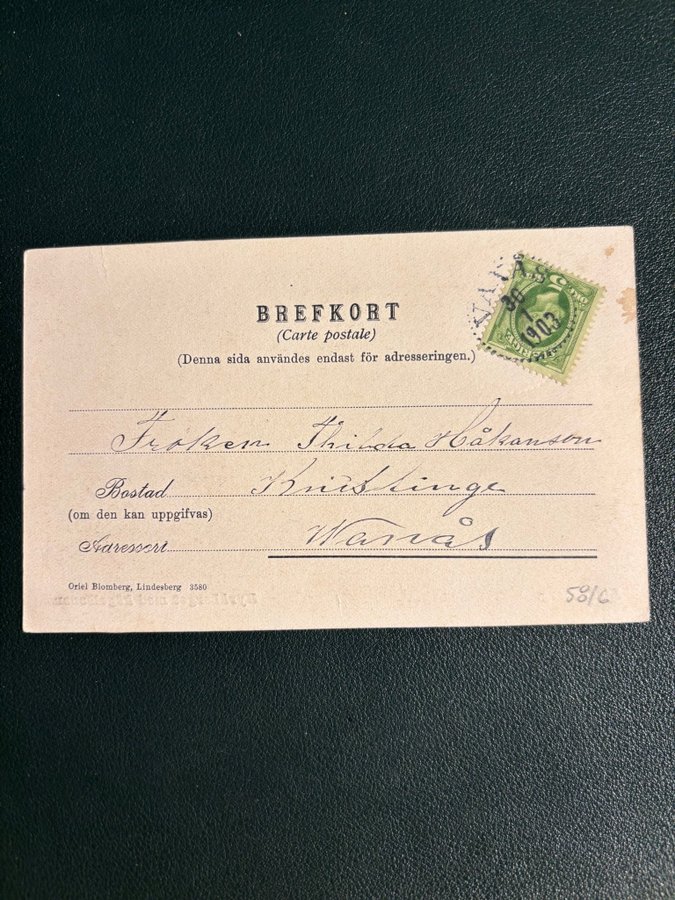 WANÅS
30
7
1903
BREFKORT
(Carte postale)
(Denna sida användes endast för adresseringen.)
Fröken Thilda Håkanson
Bostad Knislinge
(om den kan uppgifvas)
Adressort Wanås
Oriel Blomberg, Lindesberg 3580